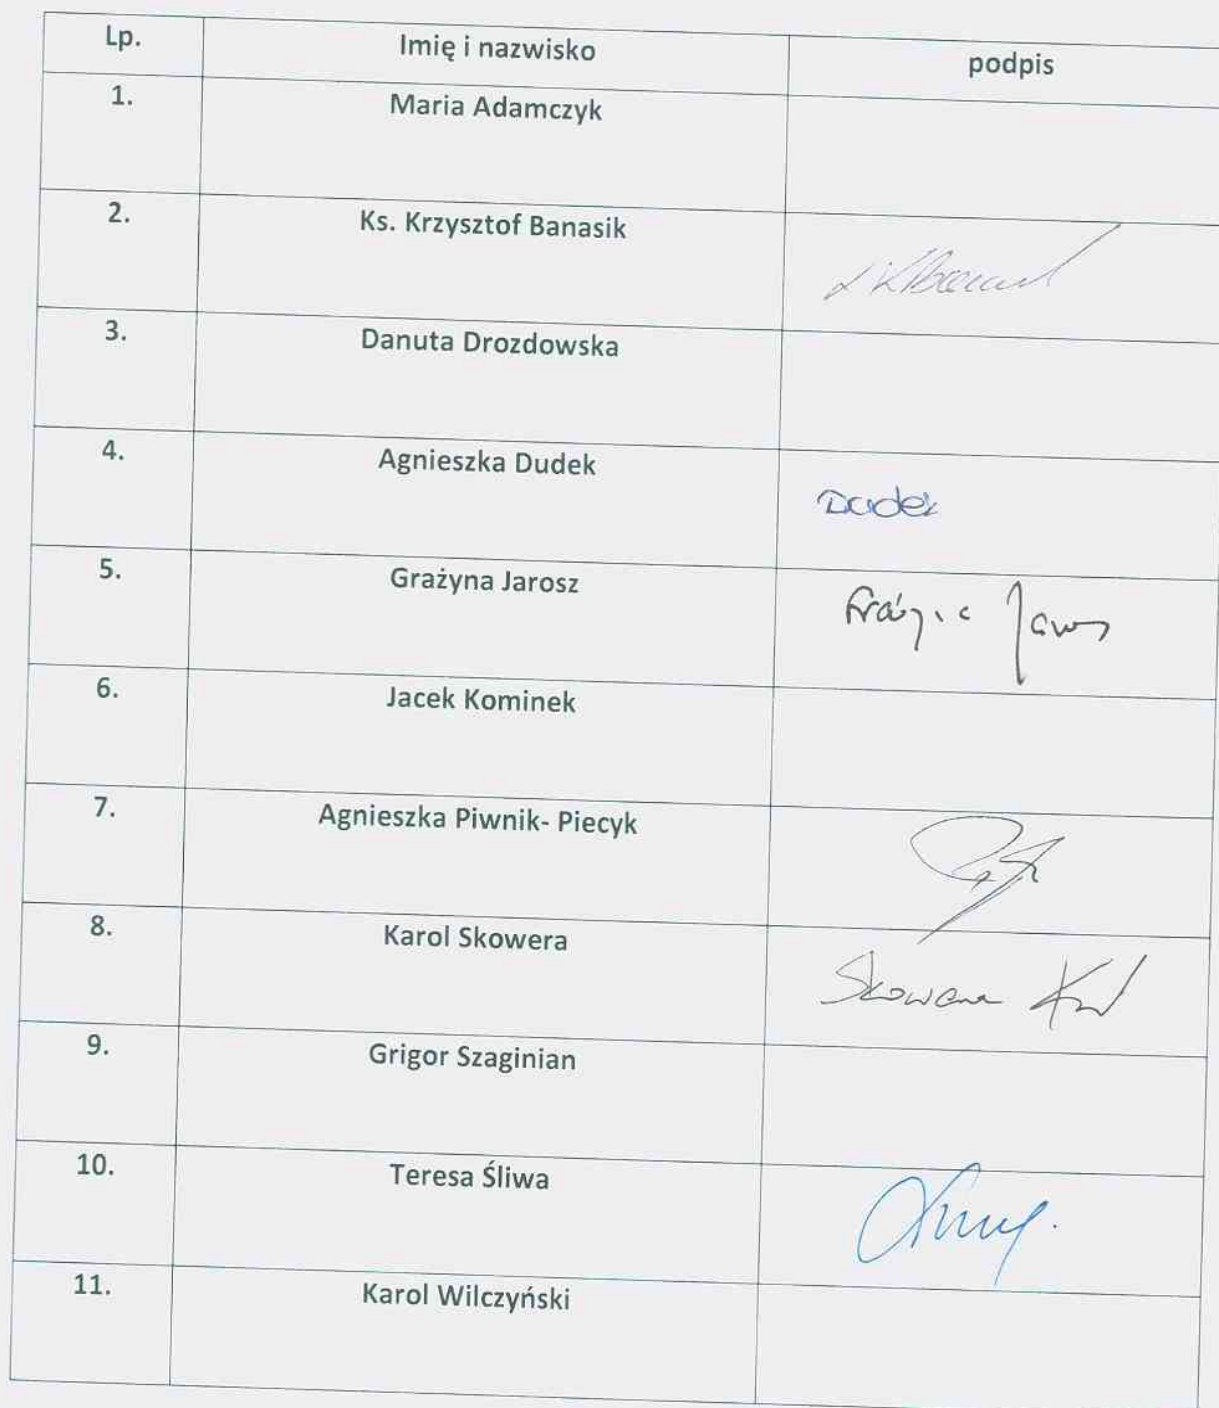 Lp. Imię i nazwisko podpis
1. Maria Adamczyk
2. Ks. Krzysztof Banasik
3. Danuta Drozdowska
4. Agnieszka Dudek Dudek
5. Grażyna Jarosz
6. Jacek Kominek
7. Agnieszka Piwnik- Piecyk
8. Karol Skowera Skowera
9. Grigor Szaginian
10. Teresa Śliwa
11. Karol Wilczyński